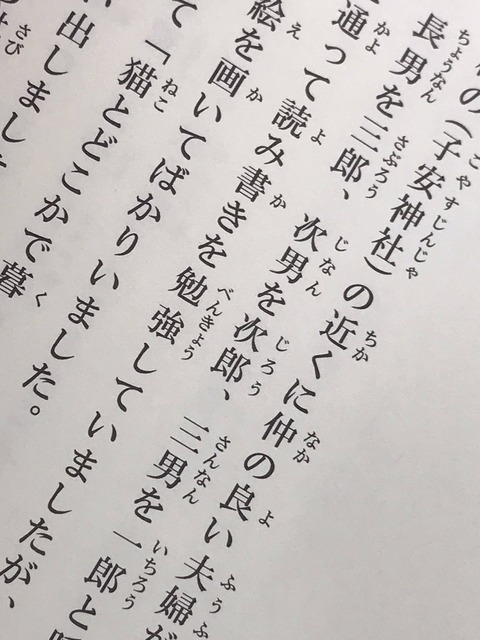 の(子安神社)の近くに仲の良い夫婦が
長男を三郎、次男を次郎、三男を一郎と
通って読み書きを勉強していましたが、
絵を画いてばかりいました。
て「猫とどこかで暮
出しました